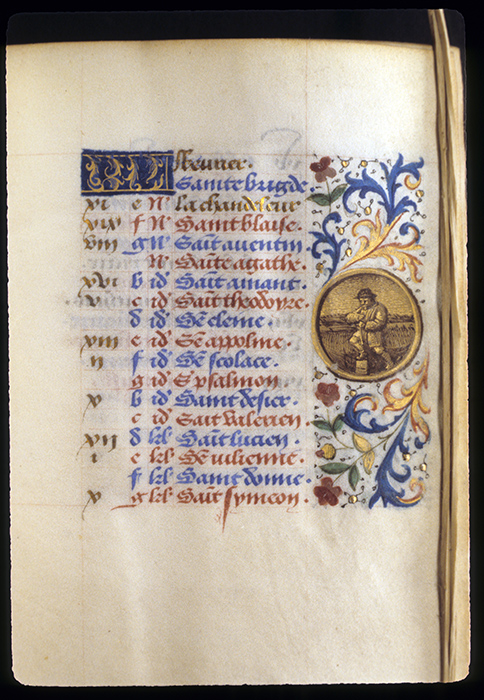 KL feurier.
Sainte brigde
xi e N la chandeleur
xix f N Saint blaise.
viii g N Sait auentin
N Saite agathe.
xvi b id Sait amant.
v c id Sait theodore.
d id Se cleme.
xiii e id Se appoline.
ii f id Se scolace.
g id S psalmon
x b id Saint desier.
c id Sait Valerien.
xvii d kl Sait lucien.
i e kl Se iulienne.
f kl Saint donne.
v g kl Sait symeon.